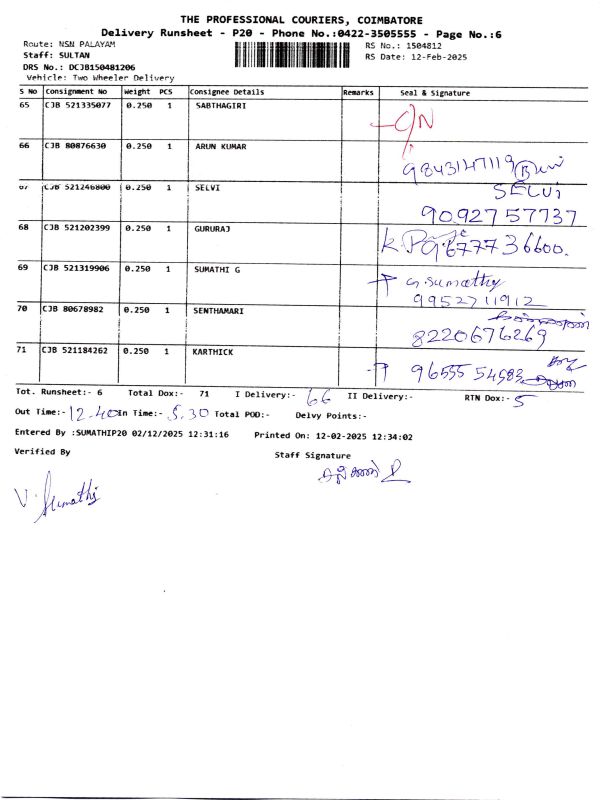 THE PROFESSIONAL COURIERS, COIMBATORE
Delivery Runsheet - P20 - Phone No.:0422-3505555 - Page No.:6
Route: NSN PALAYAM RS No.: 1504812
Staff: SULTAN RS Date: 12-Feb-2025
DRS No.: DCJB150481206
Vehicle: Two Wheeler Delivery
S No Consignment No Weight PCS Consignee Details Remarks Seal & Signature
65 CJB 521335077 0.250 1 SABTHAGIRI C/N
66 CJB 80876630 0.250 1 ARUN KUMAR
9843147119
67 CJB 521246800 0.250 1 SELVI SELVI
9092757737
68 CJB 521202399 0.250 1 GURURAJ
69 CJB 521319906 0.250 1 SUMATHI G G. Sumathy
9952711912
70 CJB 80678982 0.250 1 SENTHAMARI
8220676269
71 CJB 521184262 0.250 1 KARTHICK
Tot. Runsheet:- 6 Total Dox:- 71 I Delivery:- 66 II Delivery:- RTN Dox:- 5
Out Time:- 12.40 In Time:- 5.30 Total POD:- Delvy Points:-
Entered By :SUMATHIP20 02/12/2025 12:31:16 Printed On: 12-02-2025 12:34:02
Verified By Staff Signature
V. Sumathi